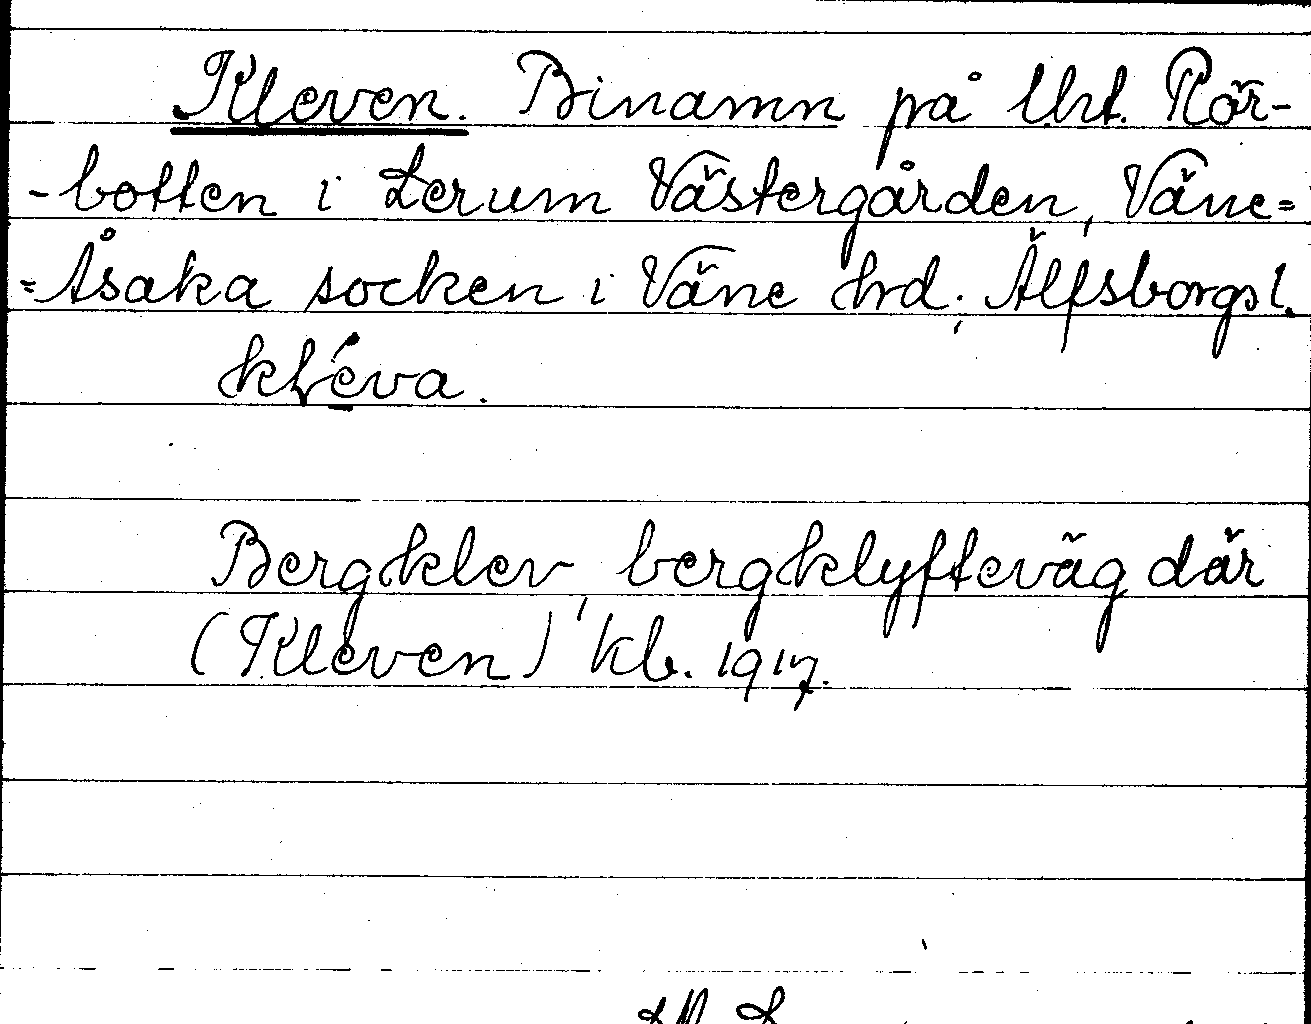 Kleven. Binamn på lht. Rör-
-botten i Lerum Västergården, Väne=
=Åsaka socken i Väne hrd; Älfsborgs l.
kléva.
Bergklev, bergklyfteväg där
(Kleven) kb. 1917.